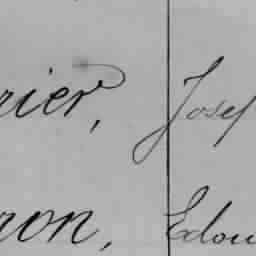 rier, Josep
ron, Edou